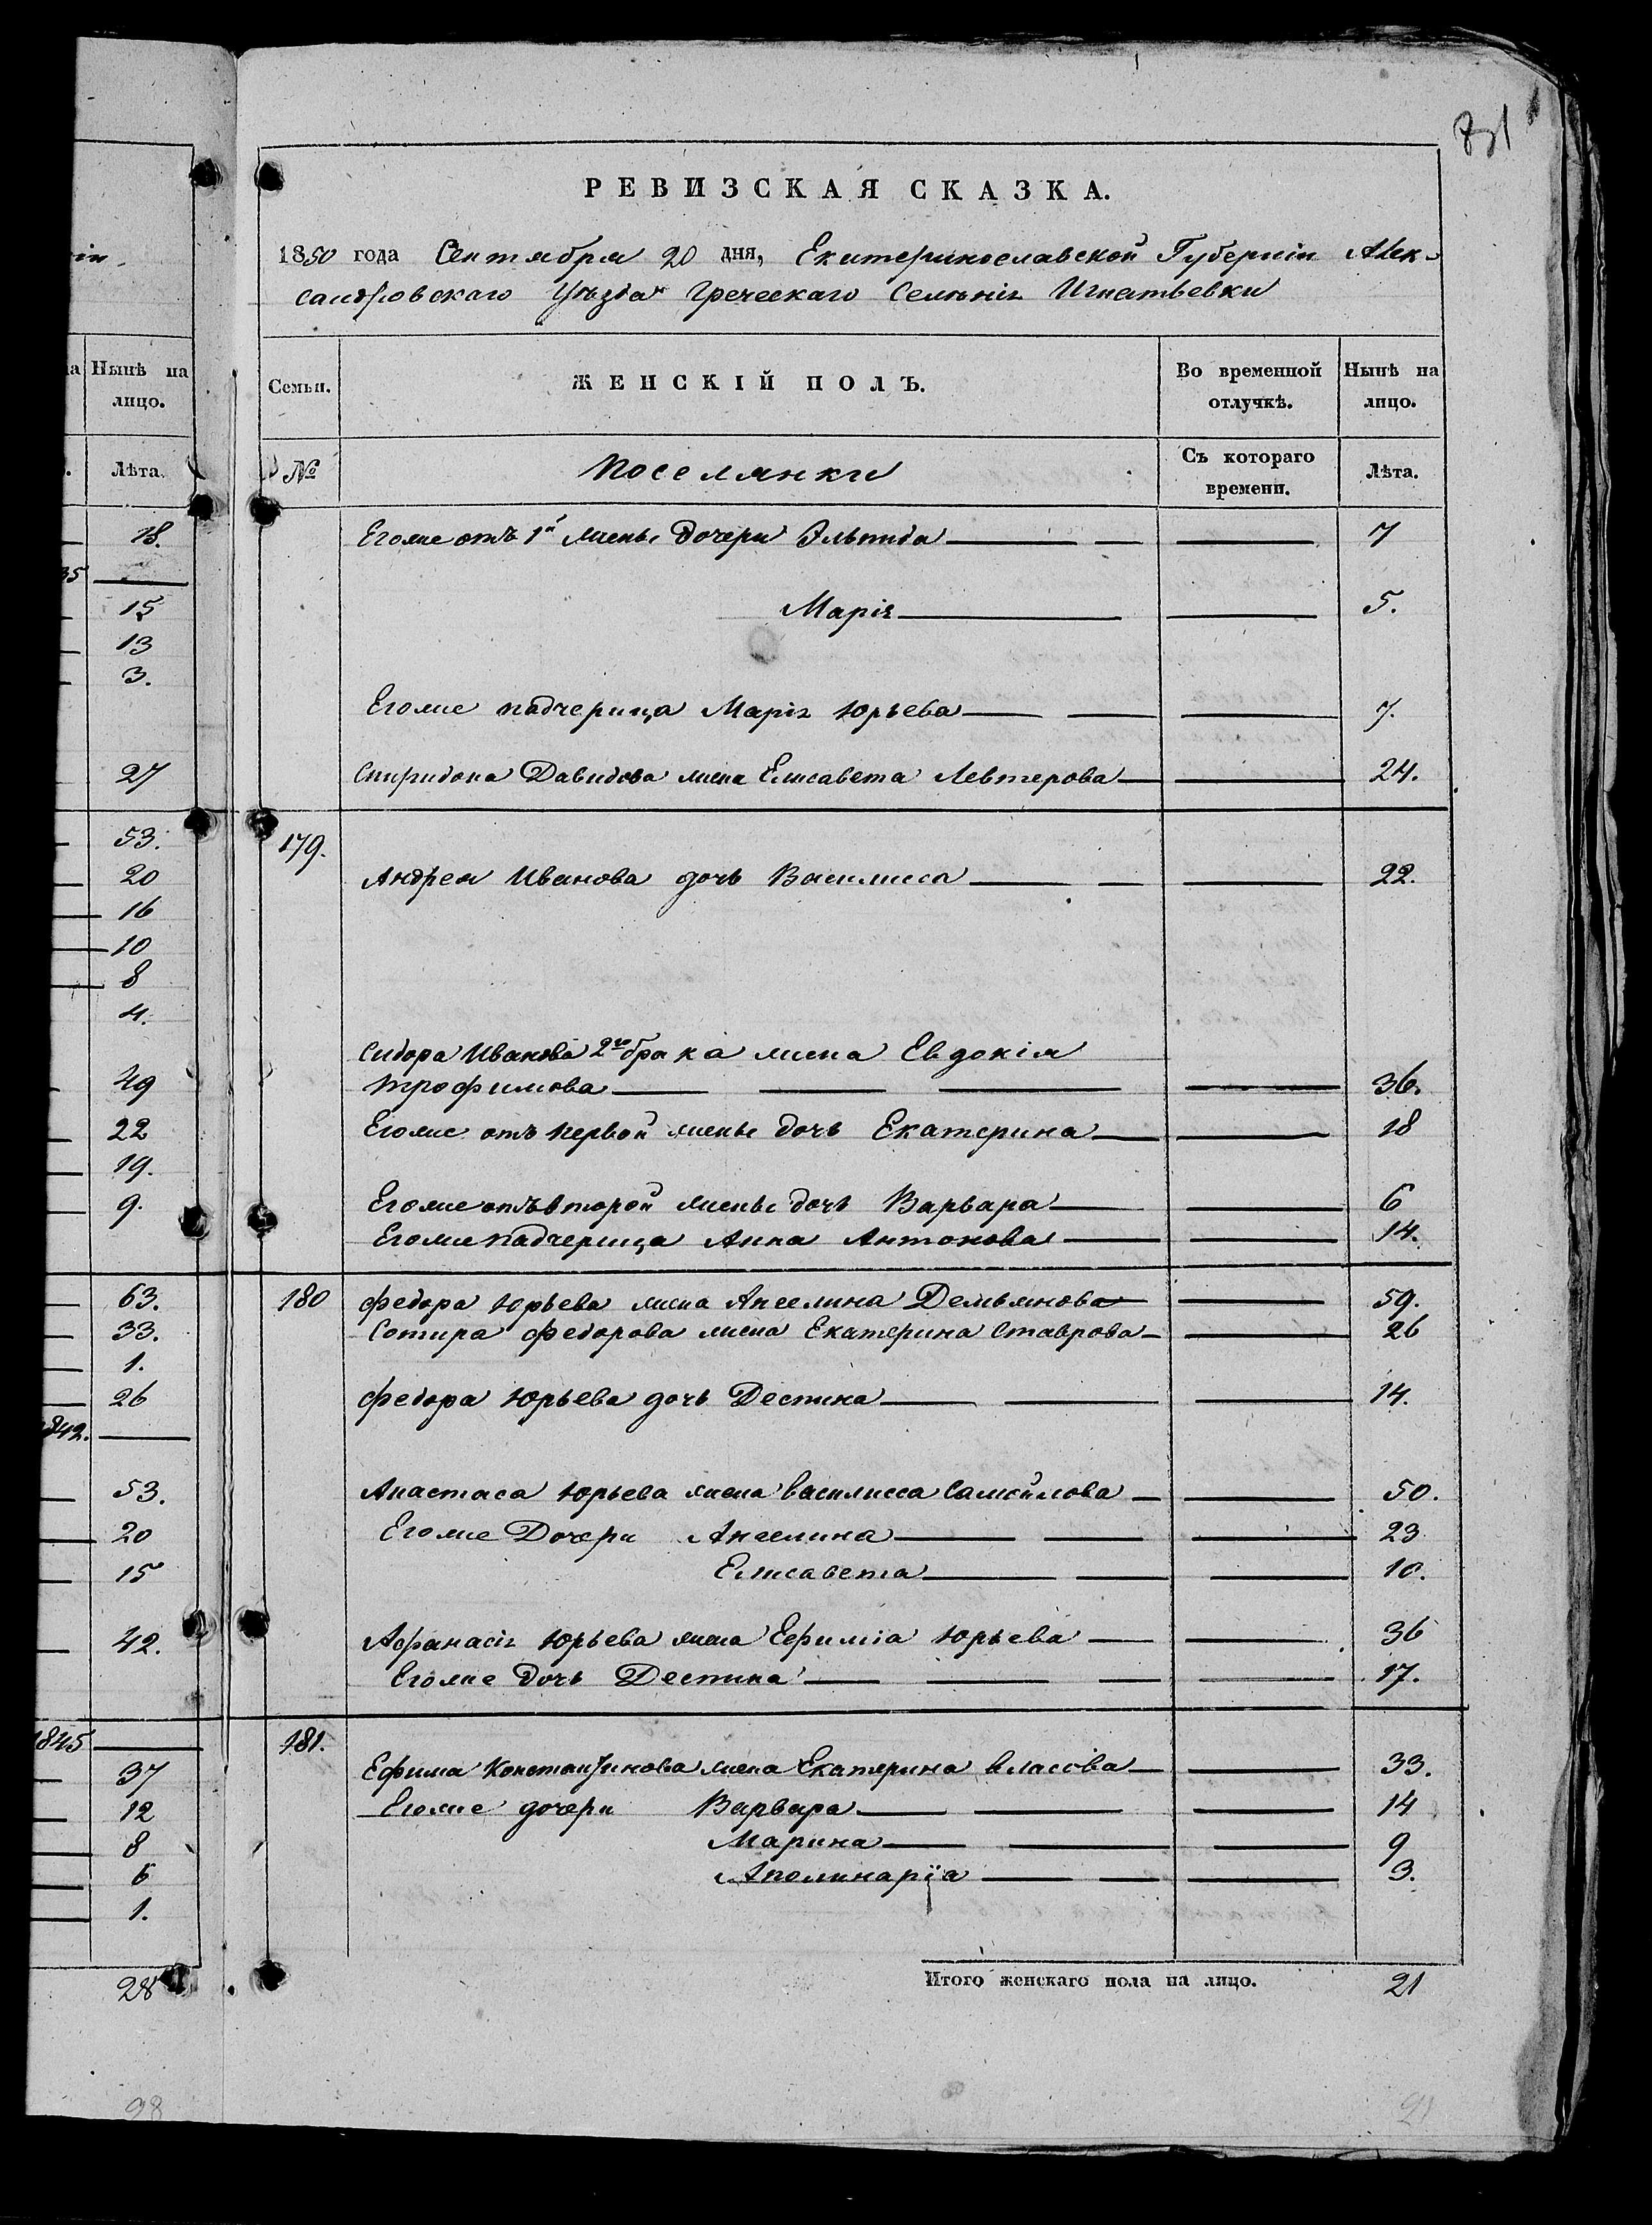 81
РЕВИЗСКАЯ СКАЗКА.
1850 года Сентября 20 дня, Екатеринославской Губерніи Алек-
сандровскаго Уѣзда Греческаго Селенія Игнатьевки
Семьи.
ЖЕНСКІЙ ПОЛЪ.
Во временной отлучкѣ.
Нынѣ на лицо.
№
Поселянки
Съ котораго времени.
Лѣта.
Егоже отъ 1й жены дочери Эльпида 7
Марія 5.
Егоже падчерица Марія Юрьева 7.
Спиридона Давидова жена Елисавета Левтерова 24.
179.
Андрея Иванова дочь Василисса 22.
Сидора Иванова 2го брака жена Евдокія
Трофимова 36.
Егоже отъ первой жены дочь Екатерина 18
Егоже отъ второй жены дочь Варвара 6
Егоже падчерица Анна Антонова 14.
180 Федора Юрьева жена Ангелина Демьянова 59.
Сотира Федорова жена Екатерина Ставрова 26
Федора Юрьева дочь Деспина 14.
Анастаса Юрьева жена Василисса Самойлова 50.
Егоже Дочери Ангелина 23
Елисавета 10.
Афанасія Юрьева жена Ефимія Юрьева 36
Егоже дочь Деспина 17.
181.
Ефима Константинова жена Екатерина Власова 33.
Егоже дочери Варвара 14
Марина 9
Аполинарія 3.
Итого женскаго пола на лицо. 21
21
Нынѣ на лицо.
Лѣта.
18.
35
15
13
3.
27
53.
20
16
10
8
4.
49
22
19.
9.
63.
33.
1.
26
1842.
53.
20
15
42.
1845
37
12
8
6
1.
28
28